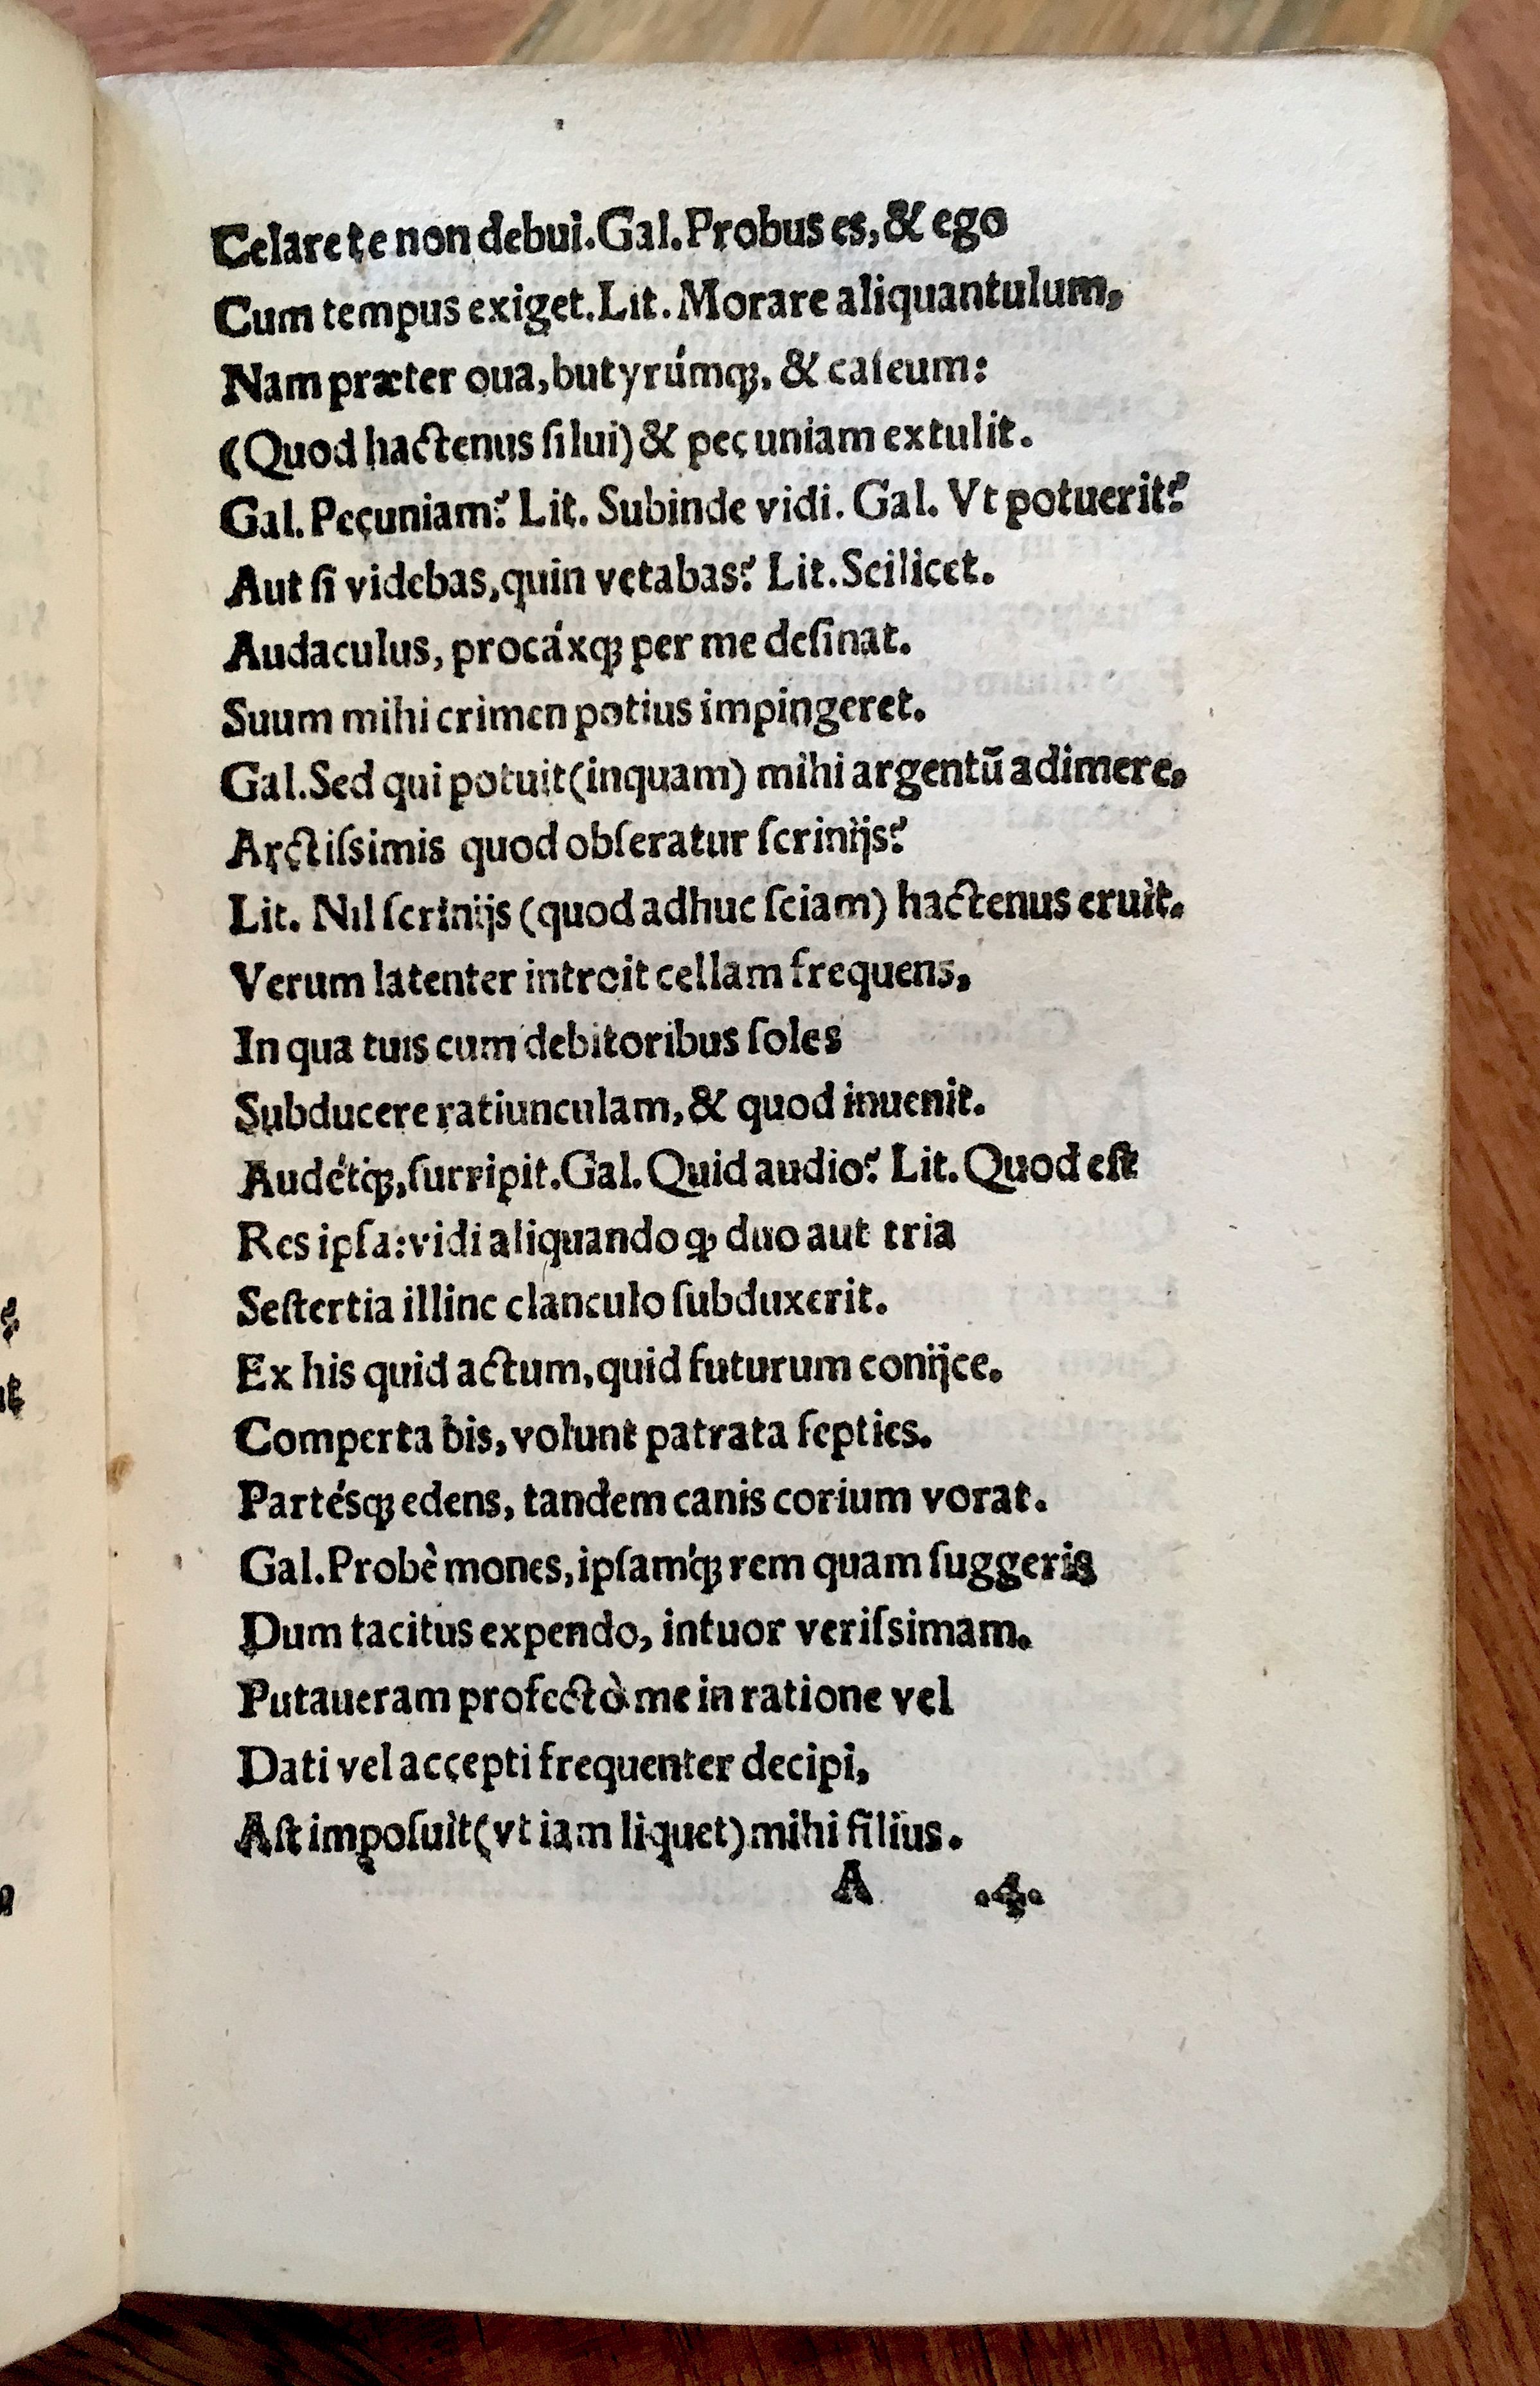 Celare te non debui. Gal. Probus es, & ego
Cum tempus exiget. Lit. Morare aliquantulum,
Nam præter oua, butyrúmq;, & caſeum:
(Quod hactenus ſilui) & pecuniam extulit.
Gal. Pecuniam? Lit. Subinde vidi. Gal. Vt potuerit?
Aut ſi videbas, quin vetabas? Lit. Scilicet.
Audaculus, procáxq; per me deſinat.
Suum mihi crimen potius impingeret.
Gal. Sed qui potuit (inquam) mihi argentū adimere,
Arctiſsimis quod obſeratur ſcrinijs?
Lit. Nil ſcrinijs (quod adhuc ſciam) hactenus eruit.
Verum latenter introit cellam frequens,
In qua tuis cum debitoribus ſoles
Subducere ratiunculam, & quod inuenit.
Audétq;, ſurripit. Gal. Quid audio? Lit. Quod eſt
Res ipſa: vidi aliquando ꝙ duo aut tria
Seſtertia illinc clanculo ſubduxerit.
Ex his quid actum, quid futurum conijce.
Comperta bis, volunt patrata ſepties.
Partésq; edens, tandem canis corium vorat.
Gal. Probè mones, ipſamq́; rem quam ſuggeris
Dum tacitus expendo, intuor veriſsimam.
Putaueram profectò me in ratione vel
Dati vel accepti frequenter decipi,
Aſt impoſuit (vt iam liquet) mihi filius.
A .4.